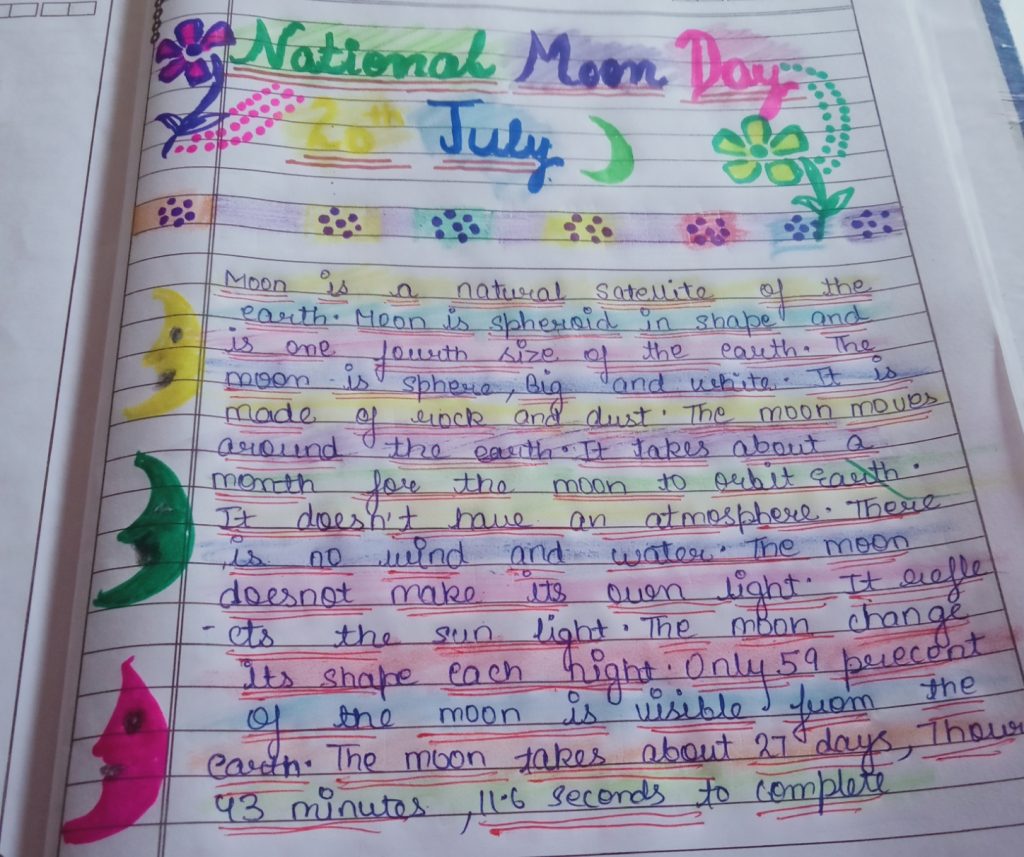 National Moon Day
20th July
Moon is a natural satellite of the
earth. Moon is spheroid in shape and
is one fourth size of the earth. The
moon is sphere, Big and white. It is
made of rock and dust. The moon moves
around the earth. It takes about a
month for the moon to orbit Earth.
It doesn't have an atmosphere. There
is no wind and water. The moon
doesnot make its own light. It refle
-cts the sun light. The moon change
its shape each night. Only 59 percent
of the moon is visible from the
earth. The moon takes about 27 days, 7hour
43 minutes, 11.6 seconds to complete